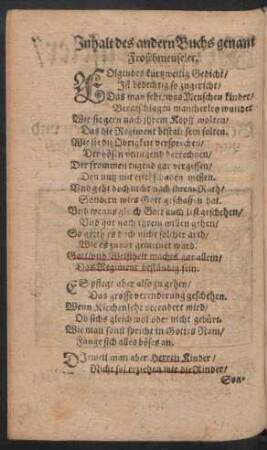 Inhalt des andern Buchs genant
Froschmeuseler.
FOlgendes kurtzweilig Gedicht/
Ist bedechtig so zugericht/
Das man sehe/ was Menschen kinder/
Berathschlagen mancherley wunder
Wie sie gern nach ihrem Kopff wolten
Das die Regiment bestalt sein solten.
Wie sie die Obrigkeit versprechen/
Der bösen untugend herrechnen/
Der frommen tugend gar vergessen/
Den nutz mit schaden messen.
Und geht doch nicht nach ihrem Rath/
Sondern wies Gott geschaffen hat.
Und wenns gleich Gott auch lest geschehen/
Und gar nach ihrem willen gehen/
So gereth es doch nicht solcher arth/
Wie es zuvor gemeinet ward.
Gott und Weißheit machts gar allein/
Das Regiment bestendig sein.
ES pflegt aber also zu gehen/
Das grosse verenderung geschehen.
Wenn Kirchenlehr verendert wird/
Ob sichs gleich wol oder nicht gebürt.
Wie man sonst spricht in Gottes Nam/
Fänget sich alles böses an.
DIeweil man aber Herren Kinder/
Nicht sol erziehen wie die Rinder/
Son-